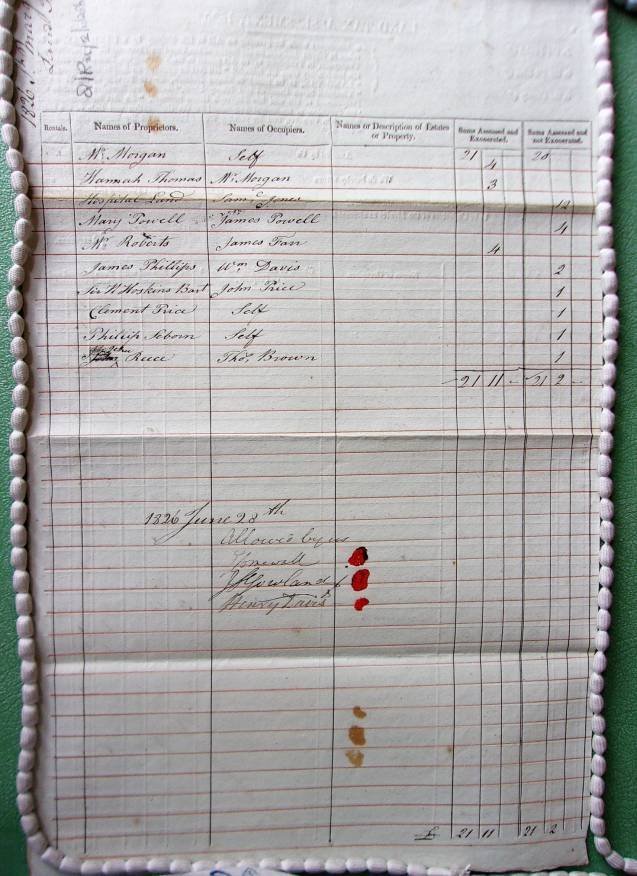 Rentals. Names of Proprietors. Names of Occupiers. Names or Description of Estates or Property. Sums Assessed and Exonerated. Sums Assessed and not Exonerated.
Mr. Morgan Self 21 4 20
Hannah Thomas Mr. Morgan 3
Hospital Land Saml Jones
Mary Powell James Powell 4
Mr. Roberts James Farr 4
James Phillips Wm Davis 2
Sir H Hoskins Bart John Price 1
Clement Price Self 1
Philip Seborn Self 1
Rece Thos. Brown 1
21 11 21 2
1826 June 28th
Allowed by us
Henry Davis
£ 21 11 21 2